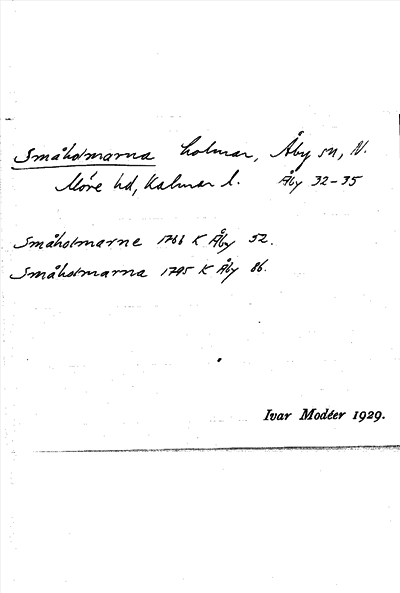 Småholmarna holmar, Åby sn, N.
Möre hd, Kalmar l. Åby 32-35
Småholmarne 1766 K Åby 52.
Småholmarna 1795 K Åby 86.
Ivar Modéer 1929.